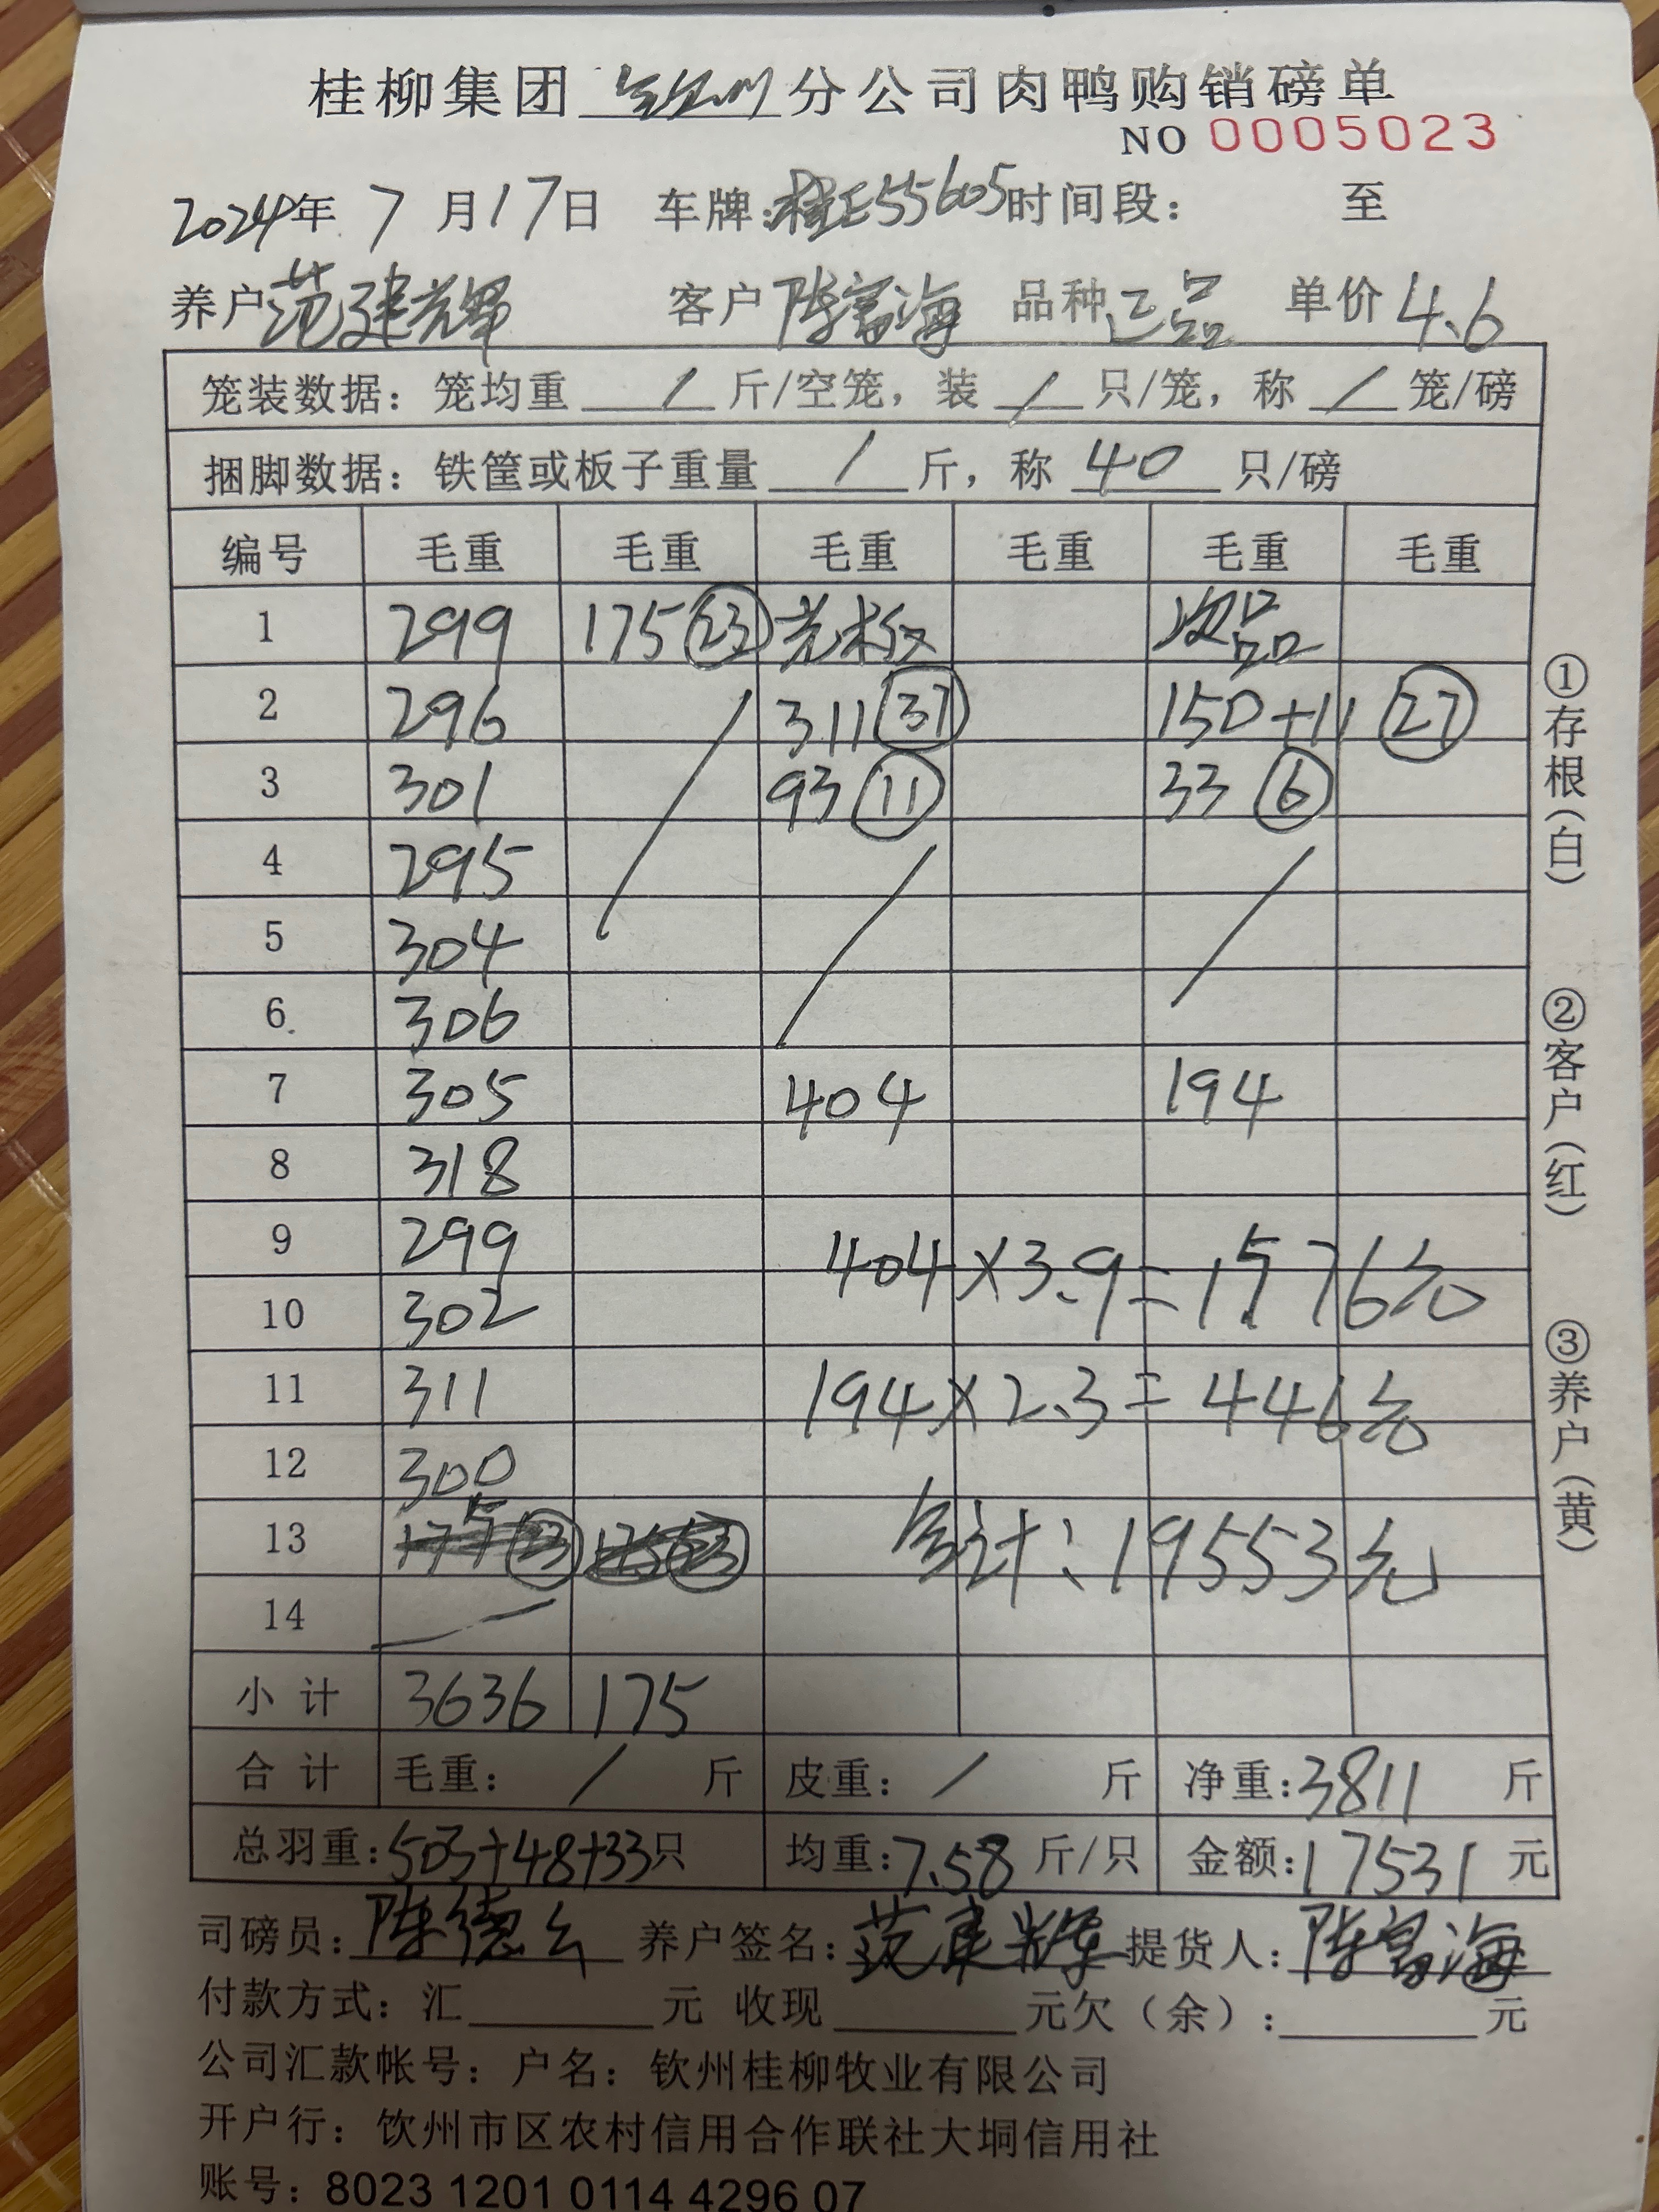 桂柳集团 钦州 分公司肉鸭购销磅单
NO 0005023
2024年 7 月 17 日 车牌:桂E55605 时间段: 至
养户 范建辉 客户 陈富海 品种 正品 单价 4.6
笼装数据: 笼均重 / 斤/空笼, 装 / 只/笼, 称 / 笼/磅
捆脚数据: 铁筐或板子重量 / 斤, 称 40 只/磅
编号 毛重 毛重 毛重 毛重 毛重 毛重
1 299 175 (23) 光板 次品
2 296 311 (37) 150+11 (27)
3 301 93 (11) 33 (6)
4 295
5 304
6 306
7 305 404 194
8 318
9 299 404×3.9=1576元
10 302
11 311 194×2.3=446元
12 300
13 175 (23) 175 (23) 合计:19553元
14
小计 3636 175
合计 毛重: / 斤 皮重: / 斤 净重:3811 斤
总羽重:503+48+33只 均重:7.58 斤/只 金额:17531 元
司磅员: 陈德 养户签名: 范建辉 提货人: 陈富海
付款方式: 汇 元 收现 元欠(余): 元
公司汇款帐号: 户名: 钦州桂柳牧业有限公司
开户行: 钦州市区农村信用合作联社大垌信用社
账号: 8023 1201 0114 4296 07
①存根(白) ②客户(红) ③养户(黄)